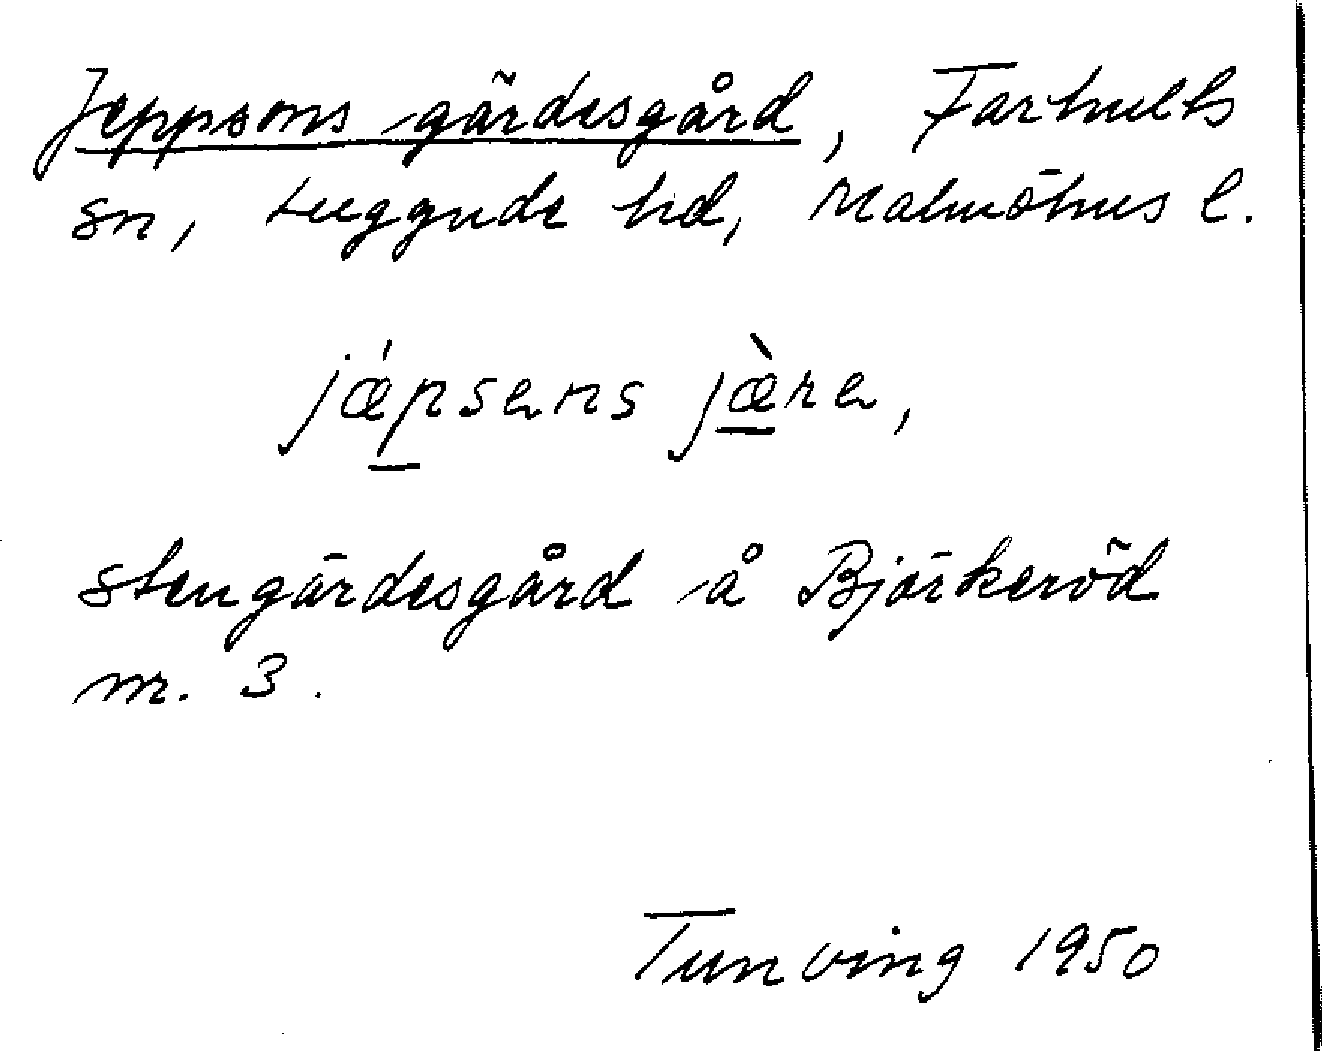 Jeppsons gärdesgård, Farhults
sn, Luggude hd, Malmöhus l.
jǽpsens jæ̀re,
stengärdesgård å Björkeröd
nr. 3.
Tunving 1950